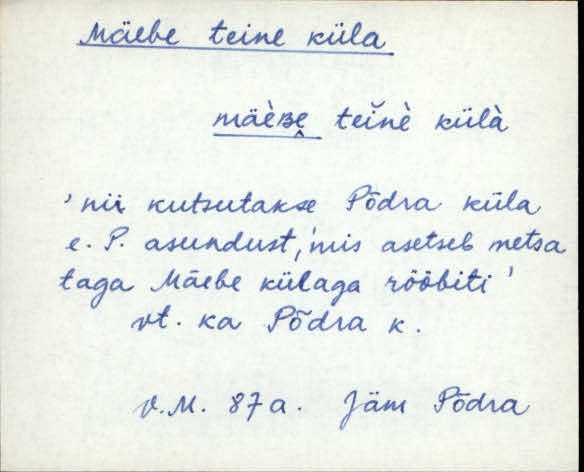 Mäebe teine küla
mäèʙe̬ teĭnè külà
'nii kutsutakse Põdra küla
e. P. asundust, mis asetseb metsa
taga Mäebe külaga rööbiti'
vt. ka Põdra k.
V.M. 87 a. Jäm Põdra